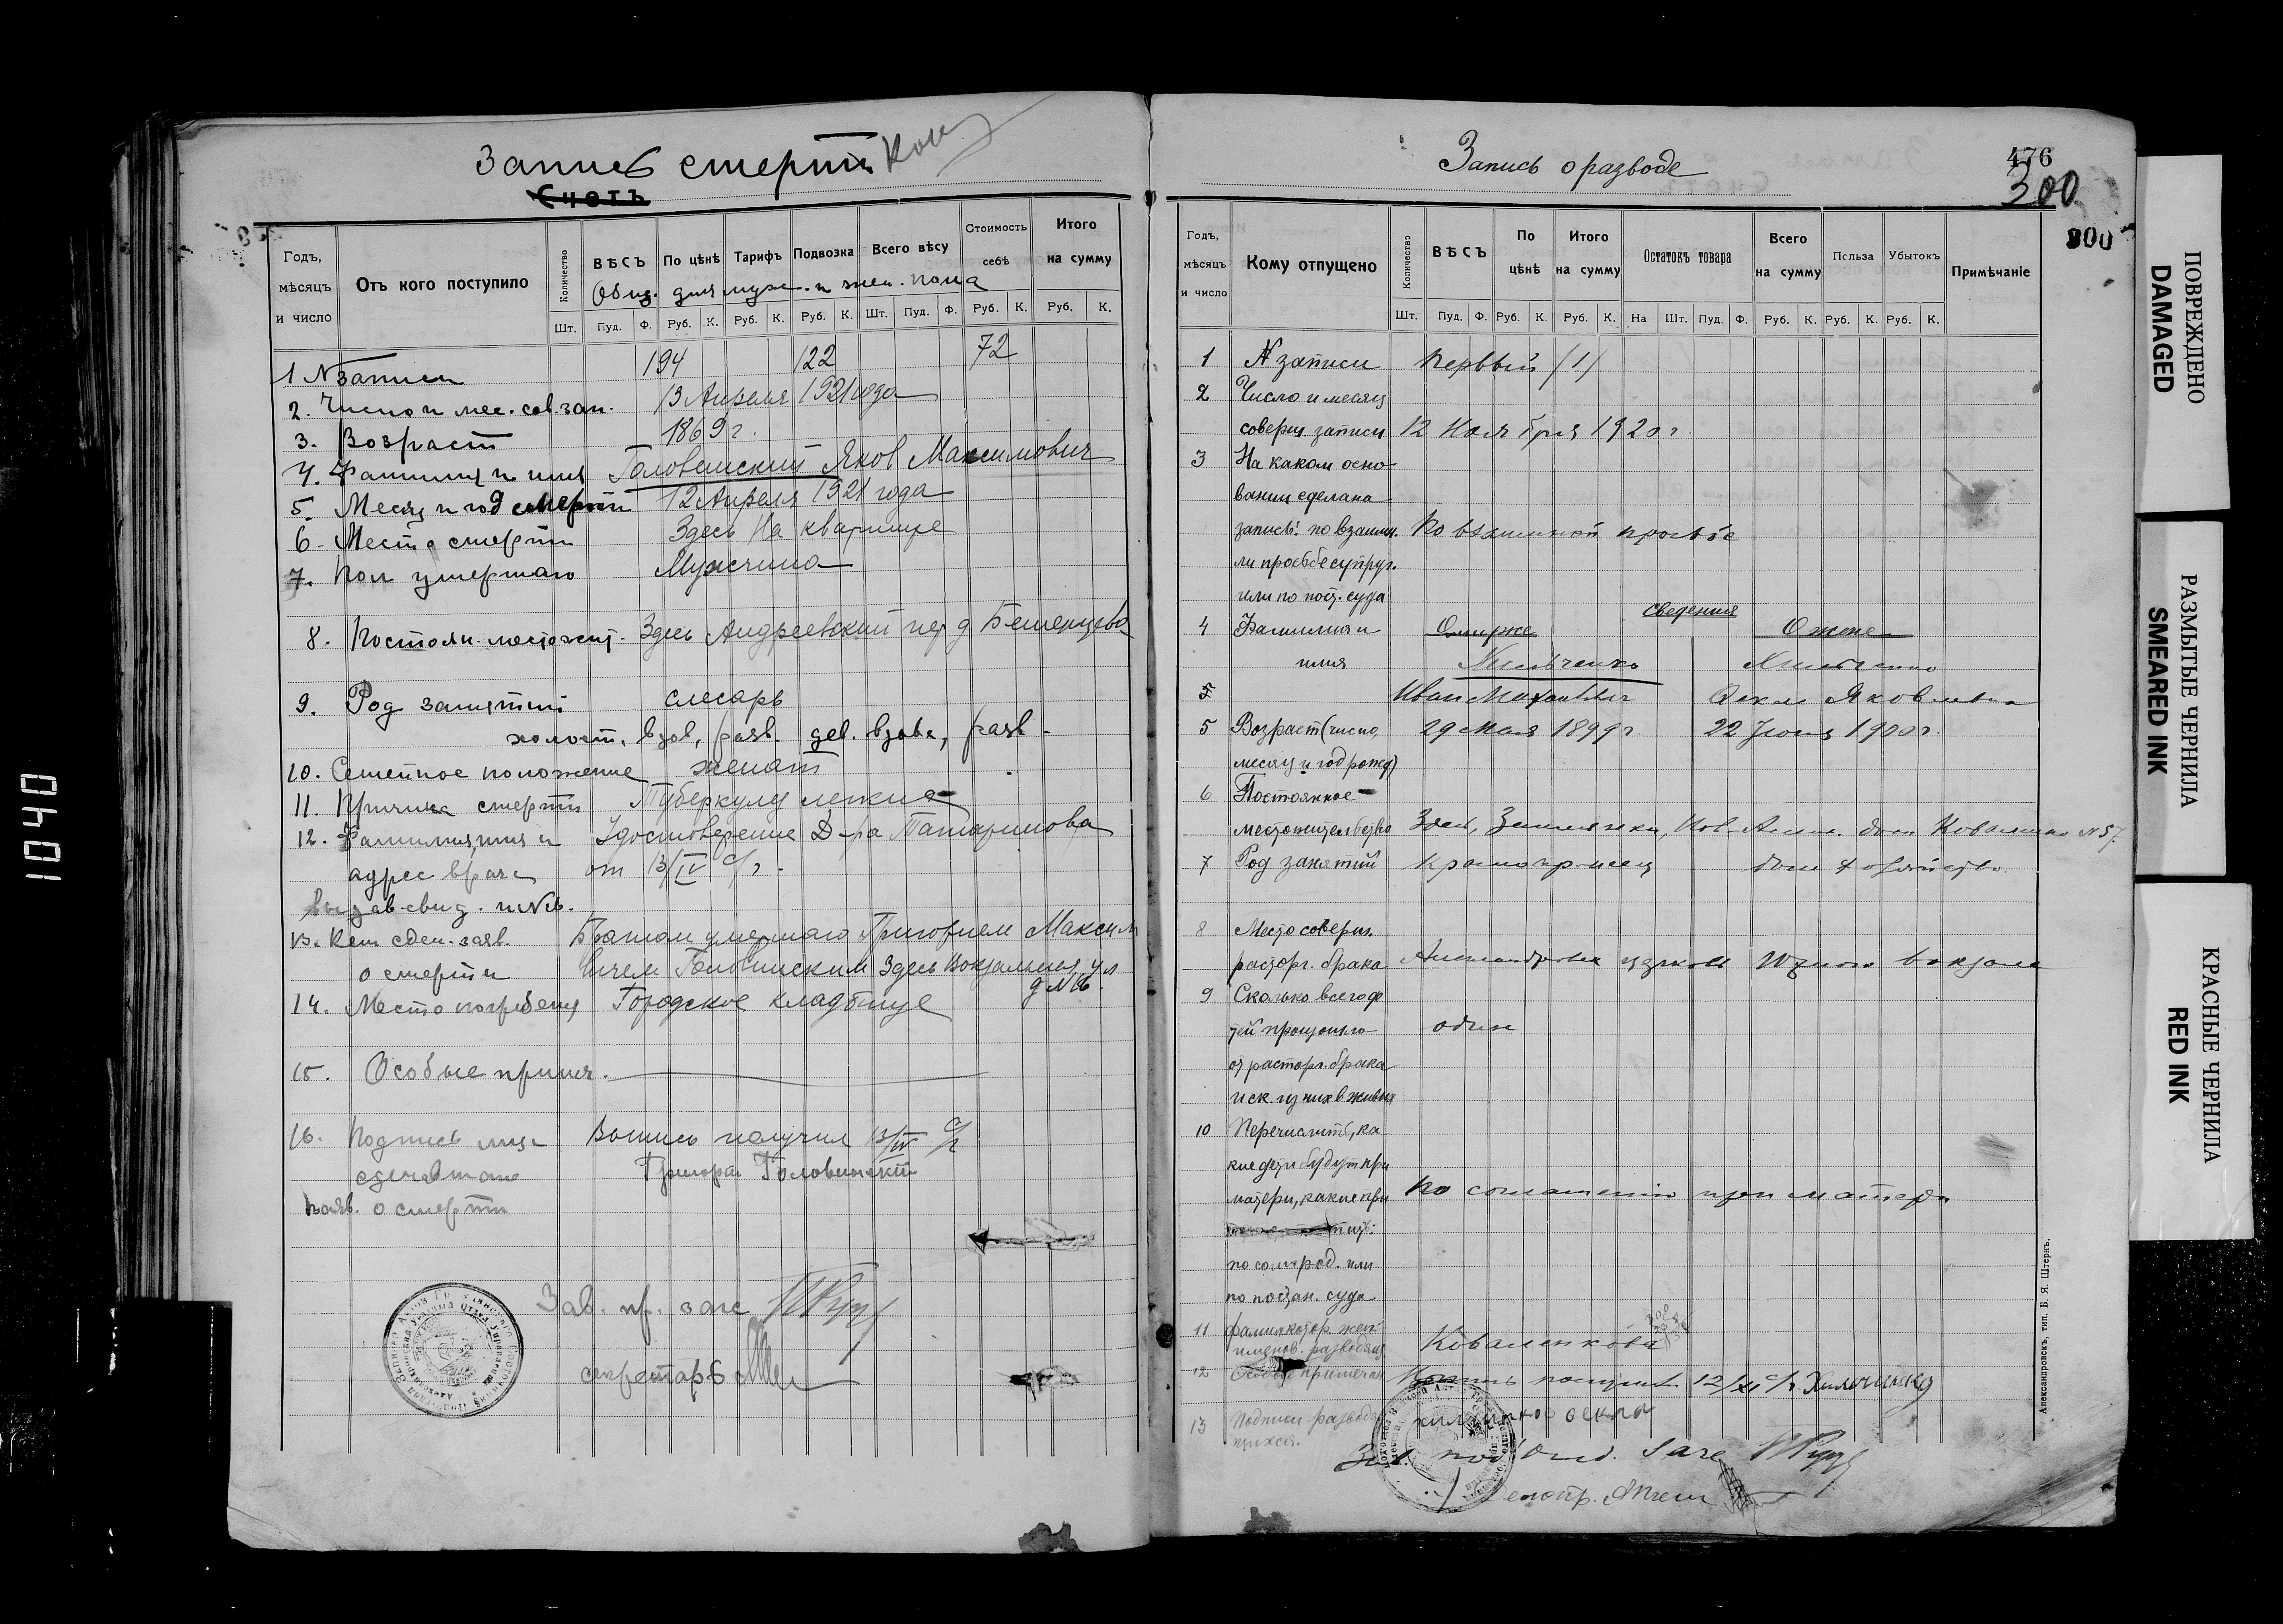 1040
Запись смерти Кон
Счетъ
Годъ, мѣсяцъ и число
Отъ кого поступило
Количество
ВѢСЪ
По цѣнѣ
Тарифъ
Подвозка
Всего вѣсу
Стоимость себѣ
Итого на сумму
для муж. и жен. пола
Шт. Пуд. Ф. Руб. К. Руб. К. Руб. К. Шт. Пуд. Ф. Руб. К. Руб. К.
1 N записи 194 122 72
2. Число и мес. сов. зап. 13 Апреля 1921 года
3. Возраст 1869 г.
4. Фамилия и имя Головинский Яков Максимович
5. Месяц и год смерти 12 Апреля 1921 года
6. Место смерти Здесь На квартире
7. Пол умершаго Мужчина
8. Постоян. местожит. Здесь Андреевский пер д
9. Род занятий слесарь
холост, вдов, разв. дев. вдова, разв.
10. Семейное положение женат
11. Причина смерти Туберкулез легких
12. Фамилия, имя и Удостоверение Д-ра Татаринова
адрес врача от 13/IV с/г.
выдав. свид. и №
13. Кем сдел. заяв. Братом умершаго Григорием Максим
о смерти вичем Головинским Здесь Вокзальная ул
14. Место погребения Городское кладбище
15. Особые примеч.
16. Подпись лица Выпись получил 13/IV с/г
сделавшаго Григорий Головинский
заяв. о смерти
Зав. п. загс
секретарь
Запись о разводе
476
300
300
Годъ, мѣсяцъ и число
Кому отпущено
Количество
ВѢСЪ
По цѣнѣ
Итого на сумму
Остатокъ товара
Всего на сумму
Польза
Убытокъ
Примѣчаніе
Шт. Пуд. Ф. Руб. К. Руб. К. На Шт. Пуд. Ф. Руб. К. Руб. К. Руб. К.
1 N записи Первый (1)
2 Число и месяц
соверш. записи 12 Ноября 1920 г
3 На каком осно-
вании сделана
запись: по взаимн. По взаимной просьбе
ли просьбе супруг.
или по пост. суда
сведения
4 Фамилия и О муже О жене
имя
5 Иван Яковлевна
5 Возраст (число, 29 Мая 1899 г 22 Июня 1900 г.
месяц и год рожд)
6 Постоянное
местожительство Здесь, дом N 57
7 Род занятий красноармеец дом. хозяйство
8 Место соверш.
расторг. брака церковь Южного вокзала
9 Сколько всего де
тей произошло один
от расторг. брака
и ск. из них в живых
10 Перечислить, ка
кие дети будут при
матери, какие при По соглашению при матери
по согл. род. или
по постан. суда
11 Коваленкова
именов. разводящ
12 Особые примечан получил 12/XI с/г
13 Подписи разводя
щихся.
Зав. под'Отд. Загс
Делопр.
Александровскъ, тип. Б. Я. Штернъ.
ПОВРЕЖДЕНО
DAMAGED
РАЗМЫТЫЕ ЧЕРНИЛА
SMEARED INK
КРАСНЫЕ ЧЕРНИЛА
RED INK